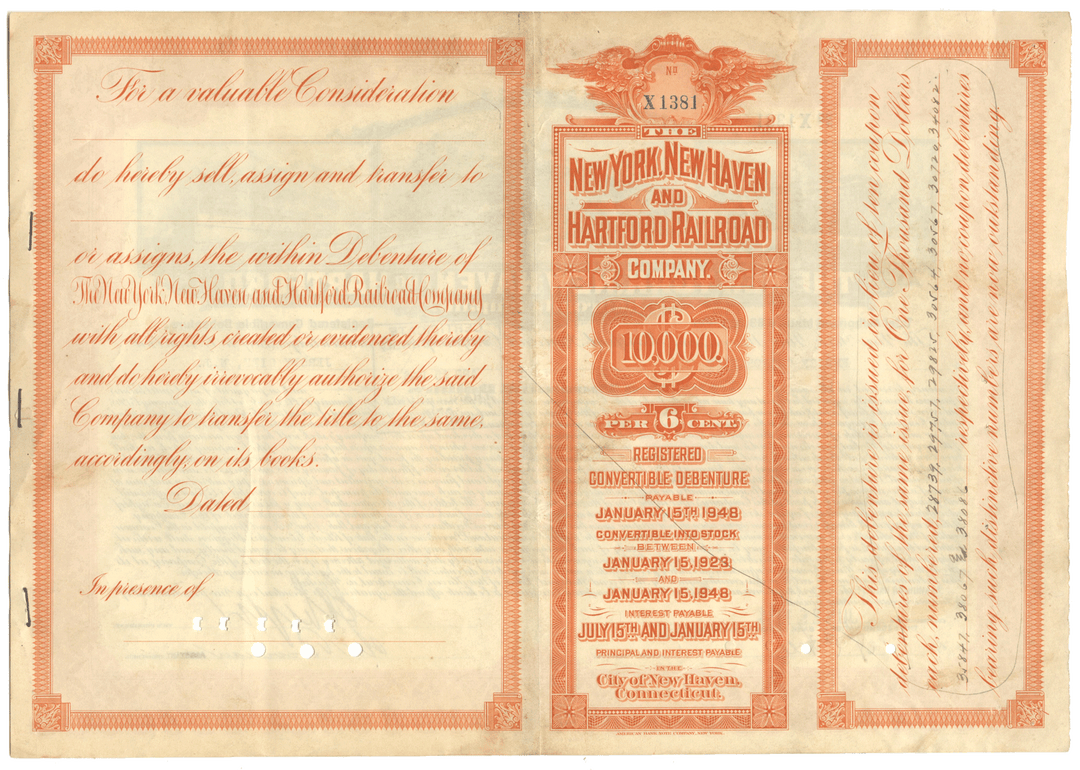 For a valuable Consideration
do hereby sell, assign and transfer to
or assigns, the within Debenture of
The New York, New Haven and Hartford Railroad Company
with all rights created or evidenced thereby
and do hereby irrevocably authorize the said
Company to transfer the title to the same,
accordingly, on its books.
Dated
In presence of
No
X1381
THE
NEW YORK, NEW HAVEN
AND
HARTFORD RAILROAD
COMPANY.
10,000.
PER 6 CENT.
REGISTERED
CONVERTIBLE DEBENTURE
PAYABLE
JANUARY 15TH 1948
CONVERTIBLE INTO STOCK
BETWEEN
JANUARY 15, 1923
AND
JANUARY 15, 1948
INTEREST PAYABLE
JULY 15TH AND JANUARY 15TH
PRINCIPAL AND INTEREST PAYABLE
IN THE
City of New Haven,
Connecticut.
AMERICAN BANK NOTE COMPANY, NEW YORK.
This debenture is issued in lieu of ten coupon
debentures of the same issue, for One Thousand Dollars
each, numbered, 28739, 29757, 29825, 30564, 30567, 30720, 34082,
38067 38086 respectively, and no coupon debentures
bearing such distinctive numbers are now outstanding.